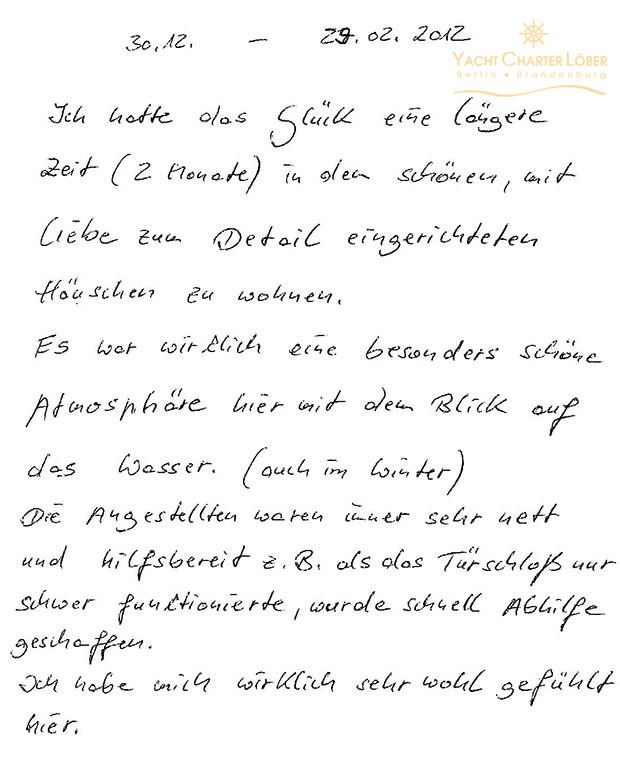 30.12. – 29.02.2012
YACHT CHARTER LÖBER
Berlin • Brandenburg
Ich hatte das Glück eine längere
Zeit (2 Monate) in dem schönen, mit
Liebe zum Detail eingerichteten
Häuschen zu wohnen.
Es war wirklich eine besonders schöne
Atmosphäre hier mit dem Blick auf
das Wasser. (auch im Winter)
Die Angestellten waren immer sehr nett
und hilfsbereit z.B. als das Türschloß nur
schwer funktionierte, wurde schnell Abhilfe
geschaffen.
Ich habe mich wirklich sehr wohl gefühlt
hier.